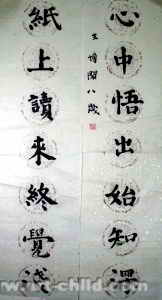 心中悟出始知深
八歲
紙上讀來終覺淺
www.art-child.com